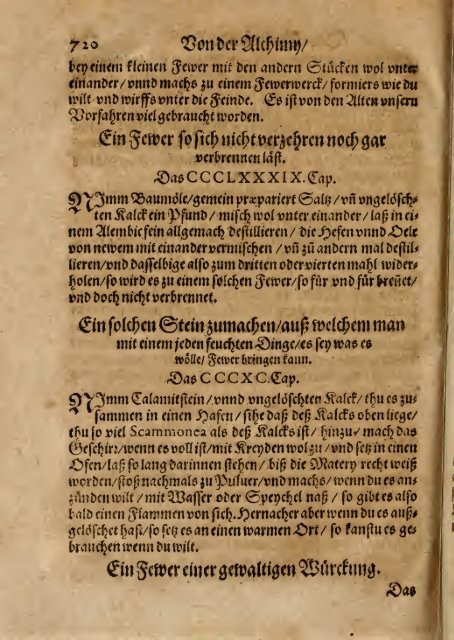 720 Von der Alchimy/
bey einem kleinen Fewer mit den andern Stücken wol vnter
einander/ vnnd machs zu einem Fewerwerck/ formiers wie du
wilt vnd wirffs vnter die Feinde. Es ist von den Alten vnsern
Vorfahren viel gebraucht worden.
Ein Fewer so sich nicht verzehren noch gar
verbrennen läst.
Das CCCLXXXIX. Cap.
NJmm Baumöle/ gemein præpariert Saltz/ vñ vngelösch-
ten Kalck ein Pfund/ misch wol vnter einander/ laß in ei-
nem Alembic fein allgemach destillieren/ die Hefen vnnd Oele
von newem mit einander vermischen/ vñ zů andern mal destil-
lieren/ vnd dasselbige also zum dritten oder vierten mahl wider-
holen/ so wird es zu einem solchen Fewer/ so für vnd für breñet/
vnd doch nicht verbrennet.
Ein solchen Stein zumachen/ auß welchem man
mit einem jeden feuchten Dinge/ es sey was es
wölle/ Fewer bringen kann.
Das CCCXC. Cap.
NJmm Calamitstein/ vnnd vngelöschten Kalck/ thu es zu-
sammen in einen Hafen/ sihe daß deß Kalcks oben liege/
thu so viel Scammonea als deß Kalcks ist/ hinzu/ mach das
Geschirr/ wenn es voll ist/ mit Kreyden wol zu/ vnd setz in einen
Ofen/ laß so lang darinnen stehen/ biß die Matery recht weiß
worden/ stoß nachmals zu Puluer/ vnd machs/ wenn du es an-
zünden wilt/ mit Wasser oder Speychel naß/ so gibt es also
bald einen Flammen von sich. Hernacher aber wenn du es auß-
gelöschet hast/ so setz es an einen warmen Ort/ so kanstu es ge-
brauchen wenn du wilt.
Ein Fewer einer gewaltigen Würckung.
Das